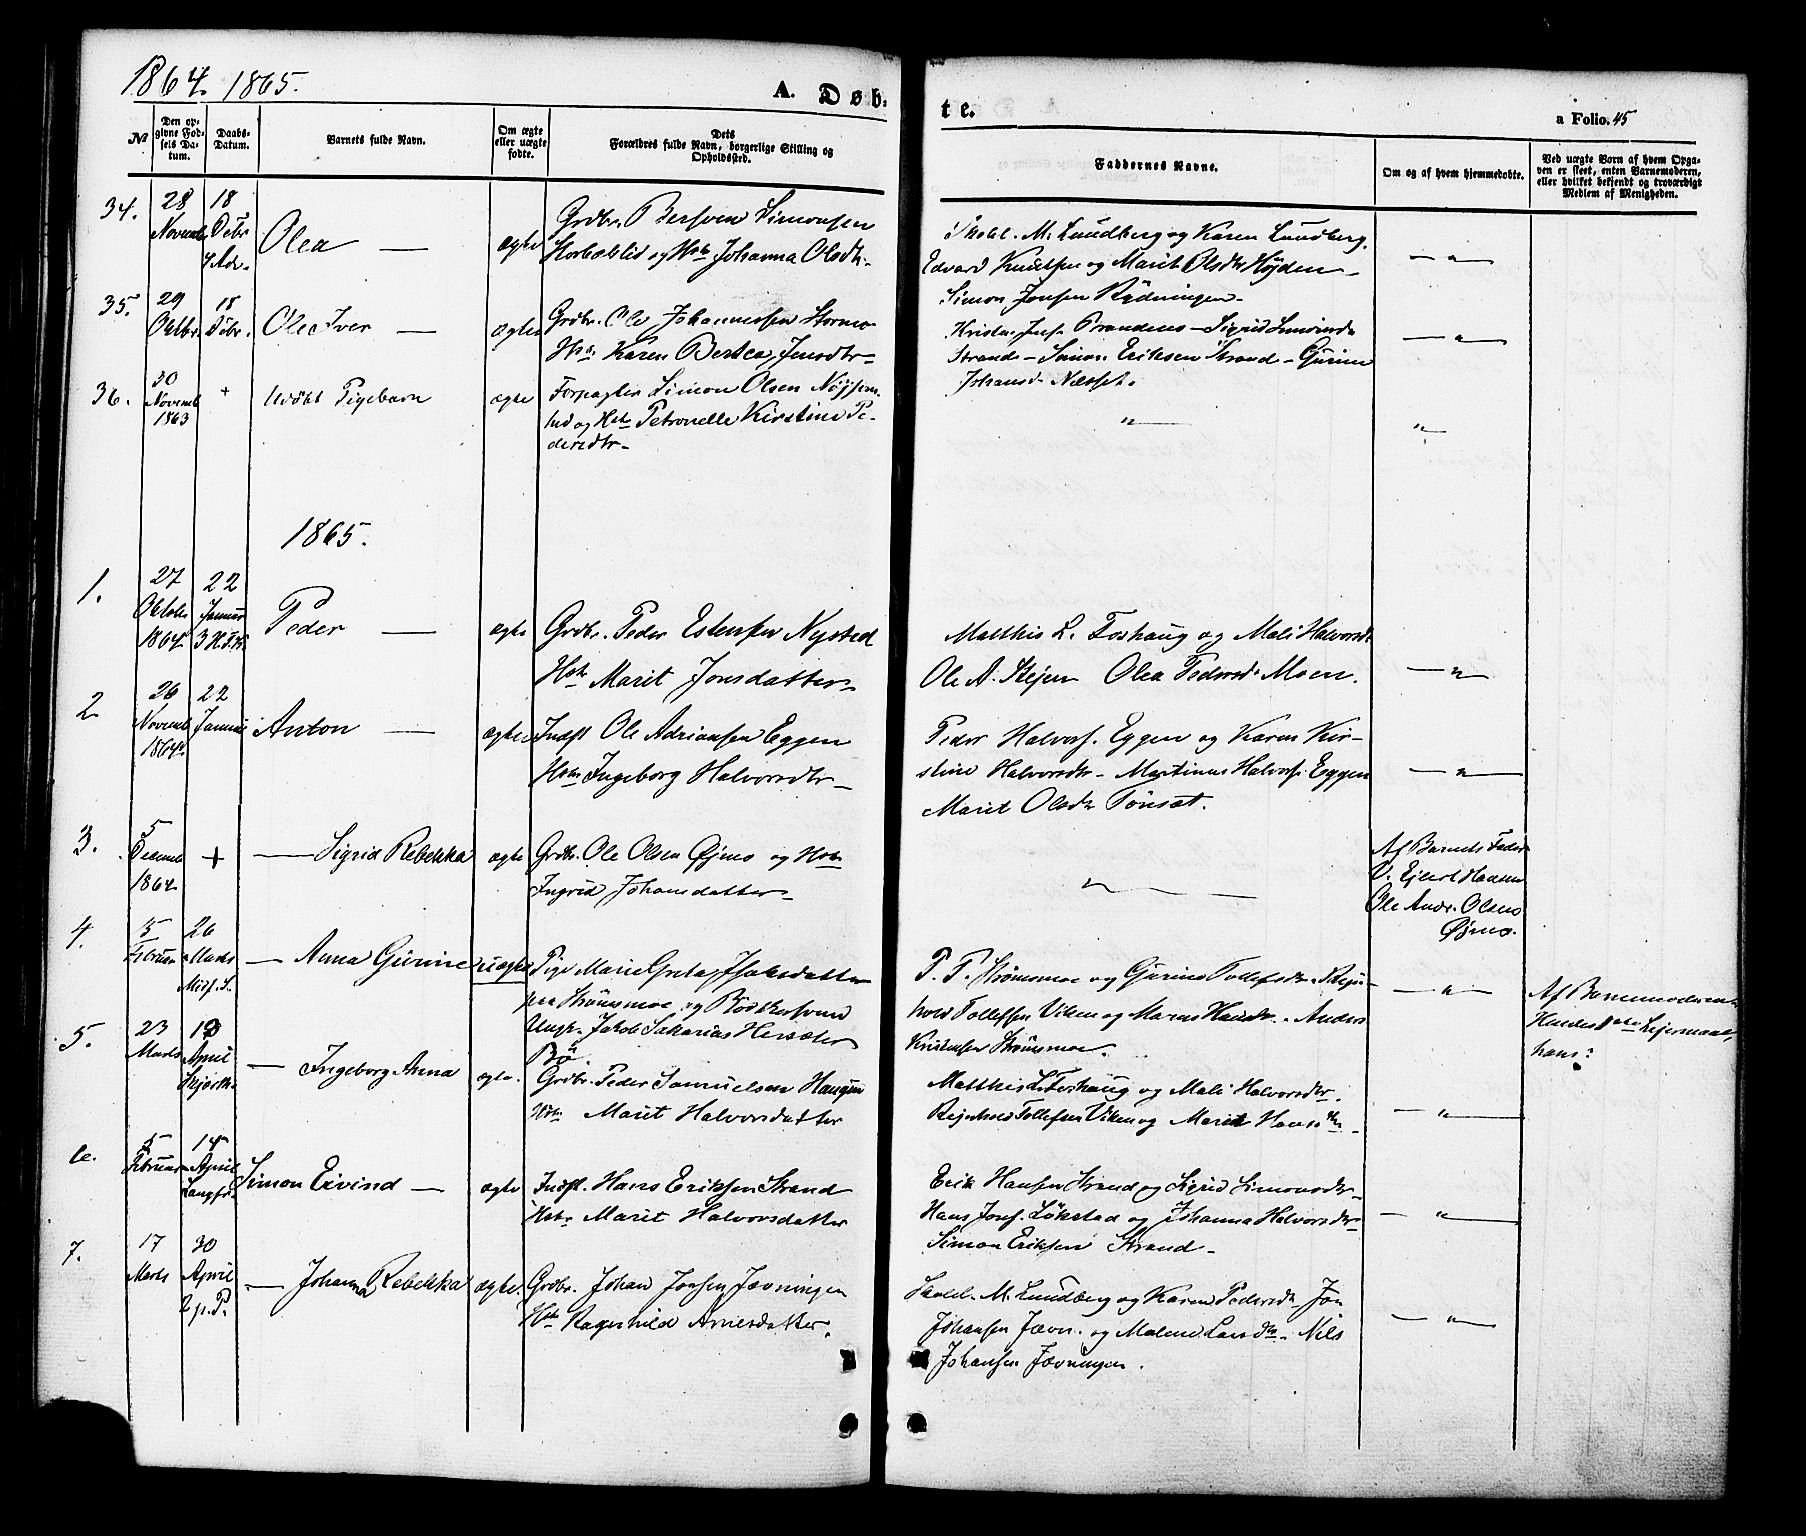 1864. 1865.
A. Døbte.
a Folio. 45
No
Den opgivne Fødsels Datum.
Daabs-Datum.
Barnets fulde Navn.
Om ægte eller uægte fødte.
Dets Forældres fulde Navn, borgerlige Stilling og Opholdssted.
Faddernes Navne.
Om og af hvem hjemmedøbte.
Ved uægte Børn af hvem Opgaven er skeet, enten Barnemoderen, eller hvilket bekjendt og troværdigt Medlem af Menigheden.
34.
28 Novemb
18 Debr 4 Adv.
Olea —
ægte
Grdbr. Bersven Simonsen
og Hst Johanna Olsdtr.
Skolel. M. Lundberg og Karen Lundberg.
Edvard Knudsen og Marit Olsdtr Højden
Simon Jonsen
— " —
35.
29 Oktbr.
18 Debr.
Ole Iver —
ægte
Grdbr. Ole Johannessen Stormo
Hst. Karen Jensdtr
Strand — Simon Eriksen Strand — Gurine
Johansd. Næsset.
— " —
36.
30 Novemb 1863
+
Udøbt Pigebarn
ægte
Forpagter Simon Olsen
og Hst Petronelle Kirstine Pe-
dersdtr
"
"
1865.
1.
27 Oktobr 1864
22 Januar 3 S. H. 3 K.
Peder —
ægte
Grdbr. Peder Estensen Nysted
Hst Marit Jonsdatter
Matthis L. Foshaug og Mali Halvorsdr
Ole A. Olea Pedersd. Moen.
— " —
2
26 Novemb 1864
22 Januar
Anton —
ægte
Indst Ole Adriansen Eggen
Hst Ingeborg Halvorsdtr
Peder Halvors. Eggen og Karen Kir-
stine Halvorsdtr — Martinus Halvors. Eggen
Marit Olsdtr Tønset.
— " —
3.
5 Decemb 1864
+
— Sigrid Rebekka
ægte
Grdbr. Ole Olsen Øjmo og Hst
Ingrid Johansdatter
"
Af Barnets Fader
V. Ejlert Hansen
Ole Andr. Olsen
Øjmo.
4.
5 Februar
26 Marts Midf. S.
— Anna Gurine
uægte
Pige Marie Greta Isaksdatter
paa Strømsmoe og
Ungk. Jakob Sakarias
Bø.
P. P. Strømsmoe og Gurine Tollefsdr. Rejn-
hold Tollefsen Viken og Maren Hansdr. Anders
Kristensen Strømsmoe.
— " —
Af Barnemoderen
5.
23 Marts
13 April Skjærth.
— Ingeborg Anna
ægte.
Grdbr. Peder Samuelsen Haugen
Hst Marit Halvorsdatter
Matthis L. Foshaug og Mali Halvorsdtr.
Rejnhold Tollefsen Viken og Marit Hansdtr
— " —
6.
5 Februar
14 April Langfr.
Simon Eivind —
ægte
Indst. Hans Eriksen Strand
Hst. Marit Halvorsdatter
Erik Hansen Strand og Sigrid Simonsdtr
Hans Josef. Løkstad og Johanna Halvorsdtr
Simon Eriksen Strand
— " —
7.
17 Marts
30 April 2 p. P.
— Johanna Rebekka
ægte.
Grdbr. Johan Jonsen Jævningen
Hst Ragnhild Arnesdatter.
Skolel. M. Lundberg og Karen Pedersdtr Jon
Johansen Jævn. og Malene Larsdtr Nils
Johansen Jævningen.
— " —